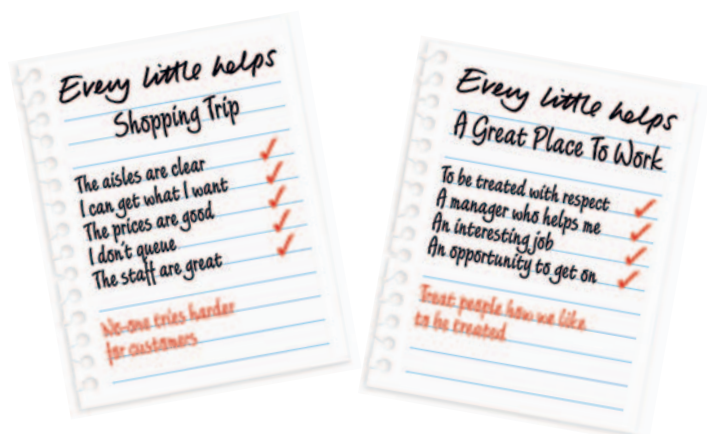 Every little helps
Shopping Trip
The aisles are clear
I can get what I want
The prices are good
I don't queue
The staff are great
No-one tries harder
for customers
Every little helps
A Great Place To Work
To be treated with respect
A manager who helps me
An interesting job
An opportunity to get on
Treat people how we like
to be treated